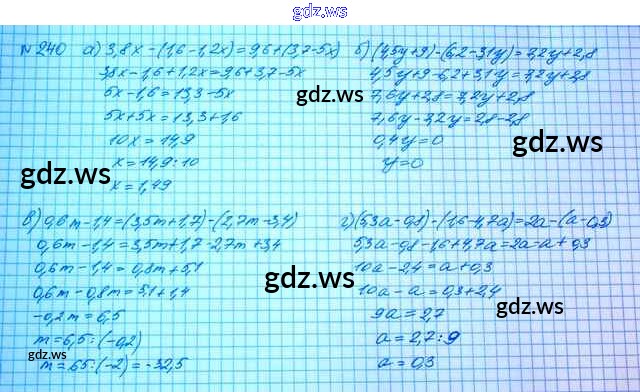 gdz.ws
№240 а) 3,8x-(1,6-1,2x)=9,6+(3,7-5x)
3,8x-1,6+1,2x=9,6+3,7-5x
5x-1,6=13,3-5x
5x+5x=13,3+1,6
10x=14,9
x=14,9:10
x=1,49
б) (4,5y+9)-(6,2-3,1y)=7,2y+2,8
4,5y+9-6,2+3,1y=7,2y+2,8
7,6y+2,8=7,2y+2,8
7,6y-7,2y=2,8-2,8
0,4y=0
y=0
в) 0,6m-1,4=(3,5m+1,7)-(2,7m-3,4)
0,6m-1,4=3,5m+1,7-2,7m+3,4
0,6m-1,4=0,8m+5,1
0,6m-0,8m=5,1+1,4
-0,2m=6,5
m=6,5:(-0,2)
m=65:(-2)=-32,5
г) (5,3a-0,8)-(1,6-4,7a)=2a-(a-0,3)
5,3a-0,8-1,6+4,7a=2a-a+0,3
10a-2,4=a+0,3
10a-a=0,3+2,4
9a=2,7
a=2,7:9
a=0,3
gdz.ws
gdz.ws
gdz.ws
gdz.ws
gdz.ws
gdz.ws
gdz.ws